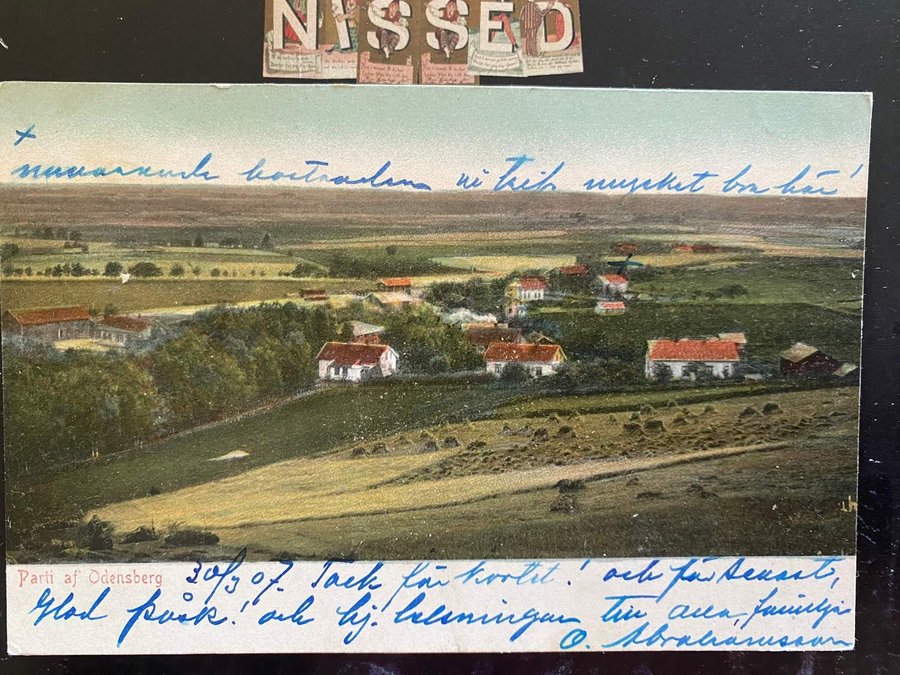 NISSED
x
nuvarande bostaden vi trifs mycket bra här!
Parti af Odensberg
30/3 07. Tack för kortet! och för senast,
Glad Påsk! och hj. helsningar till alla, familjen
O. Abrahamsson